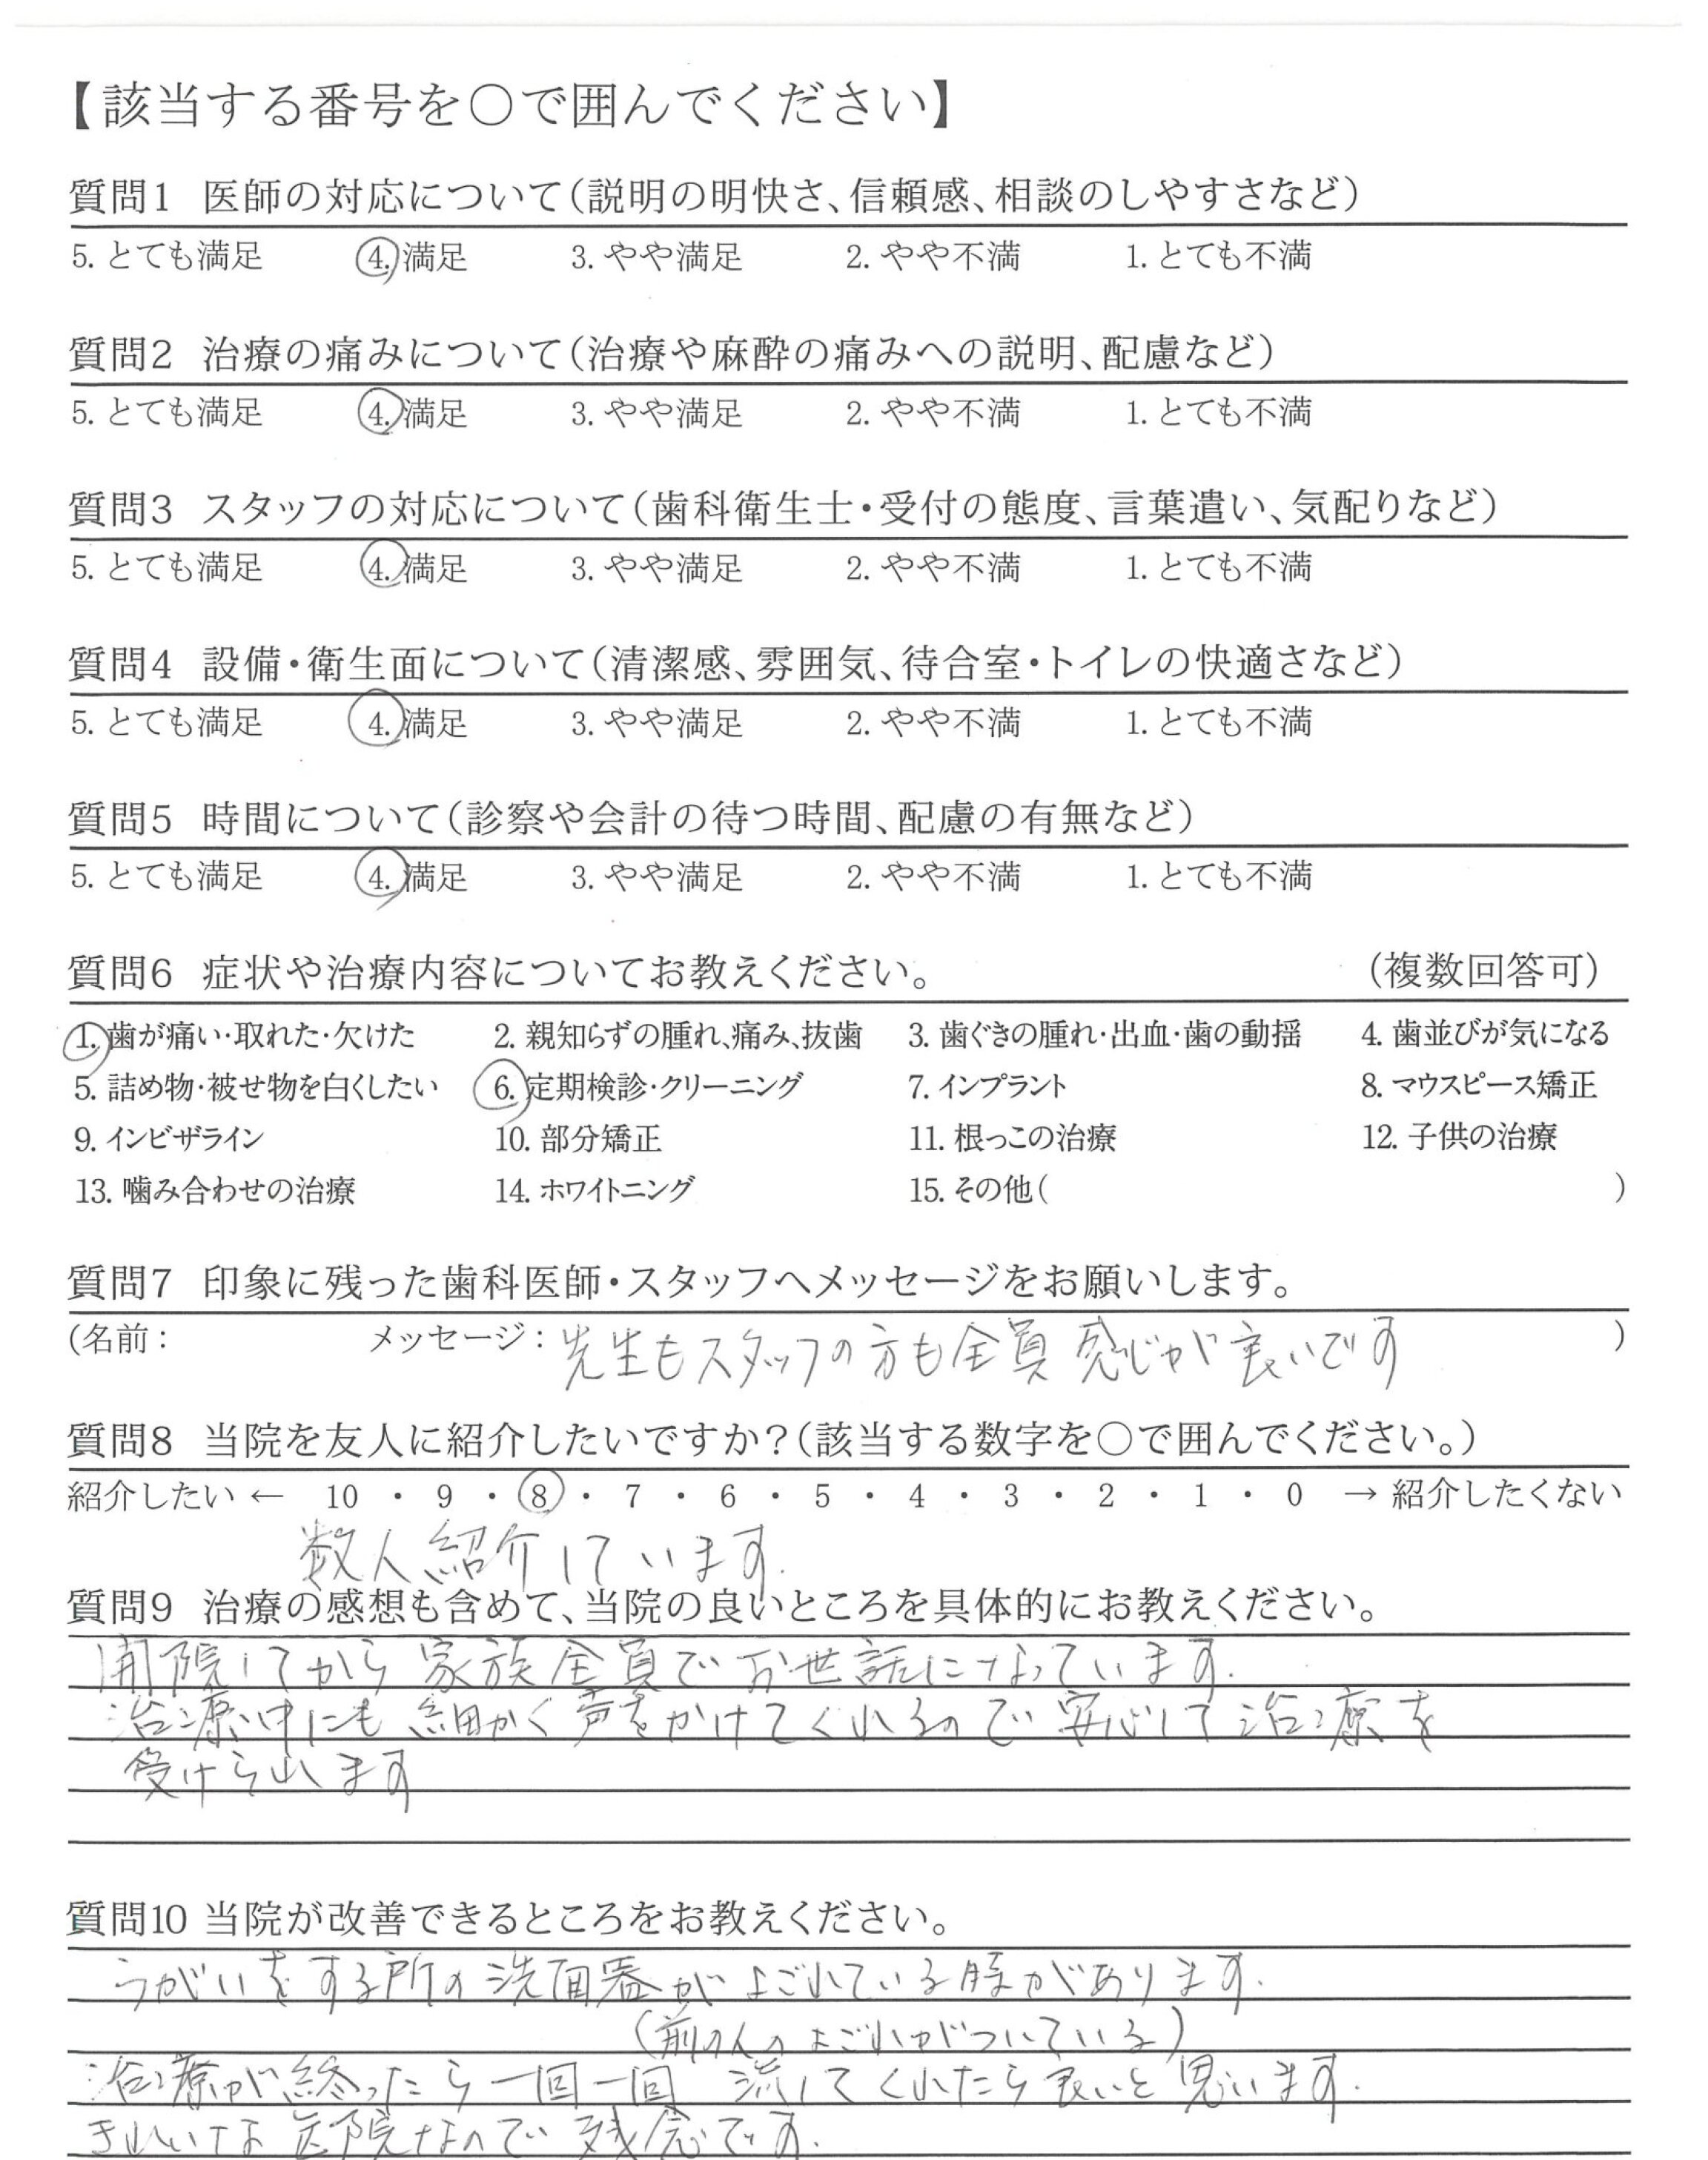 【該当する番号を〇で囲んでください】
質問1 医師の対応について(説明の明快さ、信頼感、相談のしやすさなど)
5. とても満足 4. 満足 3. やや満足 2. やや不満 1. とても不満
質問2 治療の痛みについて(治療や麻酔の痛みへの説明、配慮など)
5. とても満足 4. 満足 3. やや満足 2. やや不満 1. とても不満
質問3 スタッフの対応について(歯科衛生士・受付の態度、言葉遣い、気配りなど)
5. とても満足 4. 満足 3. やや満足 2. やや不満 1. とても不満
質問4 設備・衛生面について(清潔感、雰囲気、待合室・トイレの快適さなど)
5. とても満足 4. 満足 3. やや満足 2. やや不満 1. とても不満
質問5 時間について(診察や会計の待つ時間、配慮の有無など)
5. とても満足 4. 満足 3. やや満足 2. やや不満 1. とても不満
質問6 症状や治療内容についてお教えください。 (複数回答可)
1. 歯が痛い・取れた・欠けた 2. 親知らずの腫れ、痛み、抜歯 3. 歯ぐきの腫れ・出血・歯の動揺 4. 歯並びが気になる
5. 詰め物・被せ物を白くしたい 6. 定期検診・クリーニング 7. インプラント 8. マウスピース矯正
9. インビザライン 10. 部分矯正 11. 根っこの治療 12. 子供の治療
13. 噛み合わせの治療 14. ホワイトニング 15. その他( )
質問7 印象に残った歯科医師・スタッフへメッセージをお願いします。
(名前: メッセージ: 先生もスタッフの方も全員 感じが良いです )
質問8 当院を友人に紹介したいですか?(該当する数字を〇で囲んでください。)
紹介したい ← 10 ・ 9 ・ 8 ・ 7 ・ 6 ・ 5 ・ 4 ・ 3 ・ 2 ・ 1 ・ 0 → 紹介したくない
数人紹介しています.
質問9 治療の感想も含めて、当院の良いところを具体的にお教えください。
開院してから 家族全員で お世話になっています.
治療中にも 細かく 声をかけてくれるので 安心して 治療を
受けられます
質問10 当院が改善できるところをお教えください。
うがいをする所の 洗面器が よごれている様があります.
(前の人の よごれがついている)
治療が終ったら 一回一回 流してくれたら良いと思います.
きれいな 医院なので 残念です.